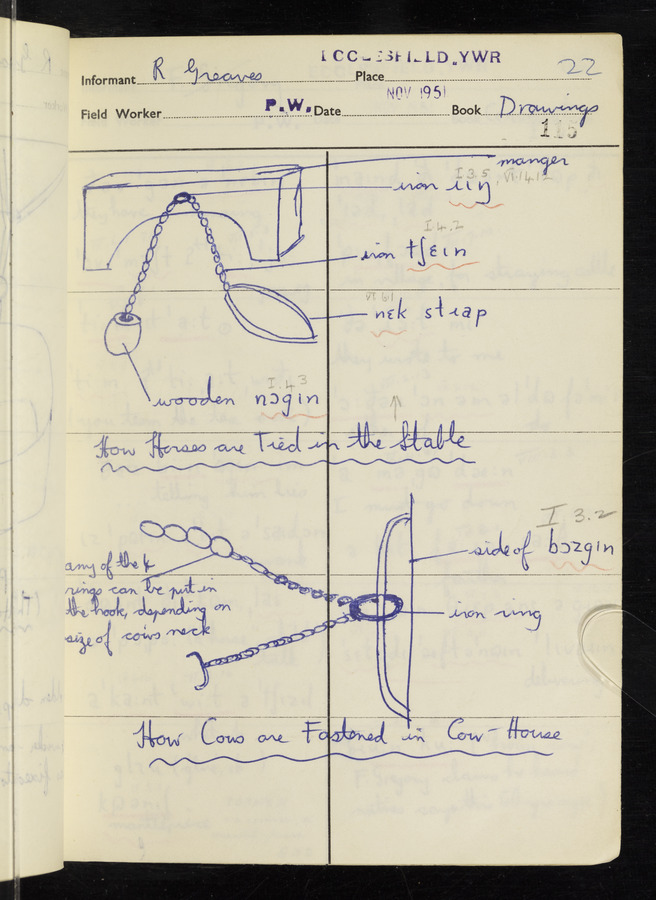 ECCLESFIELD, YWR
Informant R Greaves Place 22
Field Worker P.W. Date NOV 1951 Book Drawings
115
manger
I 3.5, VI.14.12
iron ɹiŋ
I 4.2
iron tʃɛɪn
VI 6.1
nɛk stɹap
I.4.3
wooden nɔgin
How Horses are Tied in the Stable
I 3.2
side of bɔzgɪn
any of the
rings can be put in
the hook, depending on
size of cows neck
iron ring
How Cows are Fastened in Cow-House